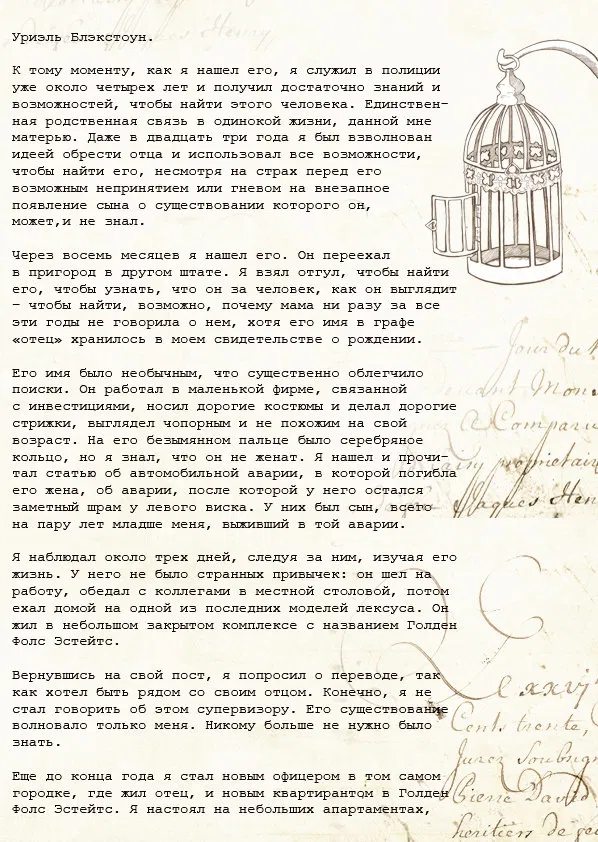 Уриэль Блэкстоун.
К тому моменту, как я нашел его, я служил в полиции
уже около четырех лет и получил достаточно знаний и
возможностей, чтобы найти этого человека. Единствен-
ная родственная связь в одинокой жизни, данной мне
матерью. Даже в двадцать три года я был взволнован
идеей обрести отца и использовал все возможности,
чтобы найти его, несмотря на страх перед его
возможным непринятием или гневом на внезапное
появление сына о существовании которого он,
может,и не знал.
Через восемь месяцев я нашел его. Он переехал
в пригород в другом штате. Я взял отгул, чтобы найти
его, чтобы узнать, что он за человек, как он выглядит
– чтобы найти, возможно, почему мама ни разу за все
эти годы не говорила о нем, хотя его имя в графе
«отец» хранилось в моем свидетельстве о рождении.
Его имя было необычным, что существенно облегчило
поиски. Он работал в маленькой фирме, связанной
с инвестициями, носил дорогие костюмы и делал дорогие
стрижки, выглядел чопорным и не похожим на свой
возраст. На его безымянном пальце было серебряное
кольцо, но я знал, что он не женат. Я нашел и прочи-
тал статью об автомобильной аварии, в которой погибла
его жена, об аварии, после которой у него остался
заметный шрам у левого виска. У них был сын, всего
на пару лет младше меня, выживший в той аварии.
Я наблюдал около трех дней, следуя за ним, изучая его
жизнь. У него не было странных привычек: он шел на
работу, обедал с коллегами в местной столовой, потом
ехал домой на одной из последних моделей лексуса. Он
жил в небольшом закрытом комплексе с названием Голден
Фолс Эстейтс.
Вернувшись на свой пост, я попросил о переводе, так
как хотел быть рядом со своим отцом. Конечно, я не
стал говорить об этом супервизору. Его существование
волновало только меня. Никому больше не нужно было
знать.
Еще до конца года я стал новым офицером в том самом
городке, где жил отец, и новым квартирантом в Голден
Фолс Эстейтс. Я настоял на небольших апартаментах,
Jour du
Mon
Compar
proprietair
Jaques Hen
xxvj
Cents trente,
Jurez Soubsign
Pierre David
heritiers de